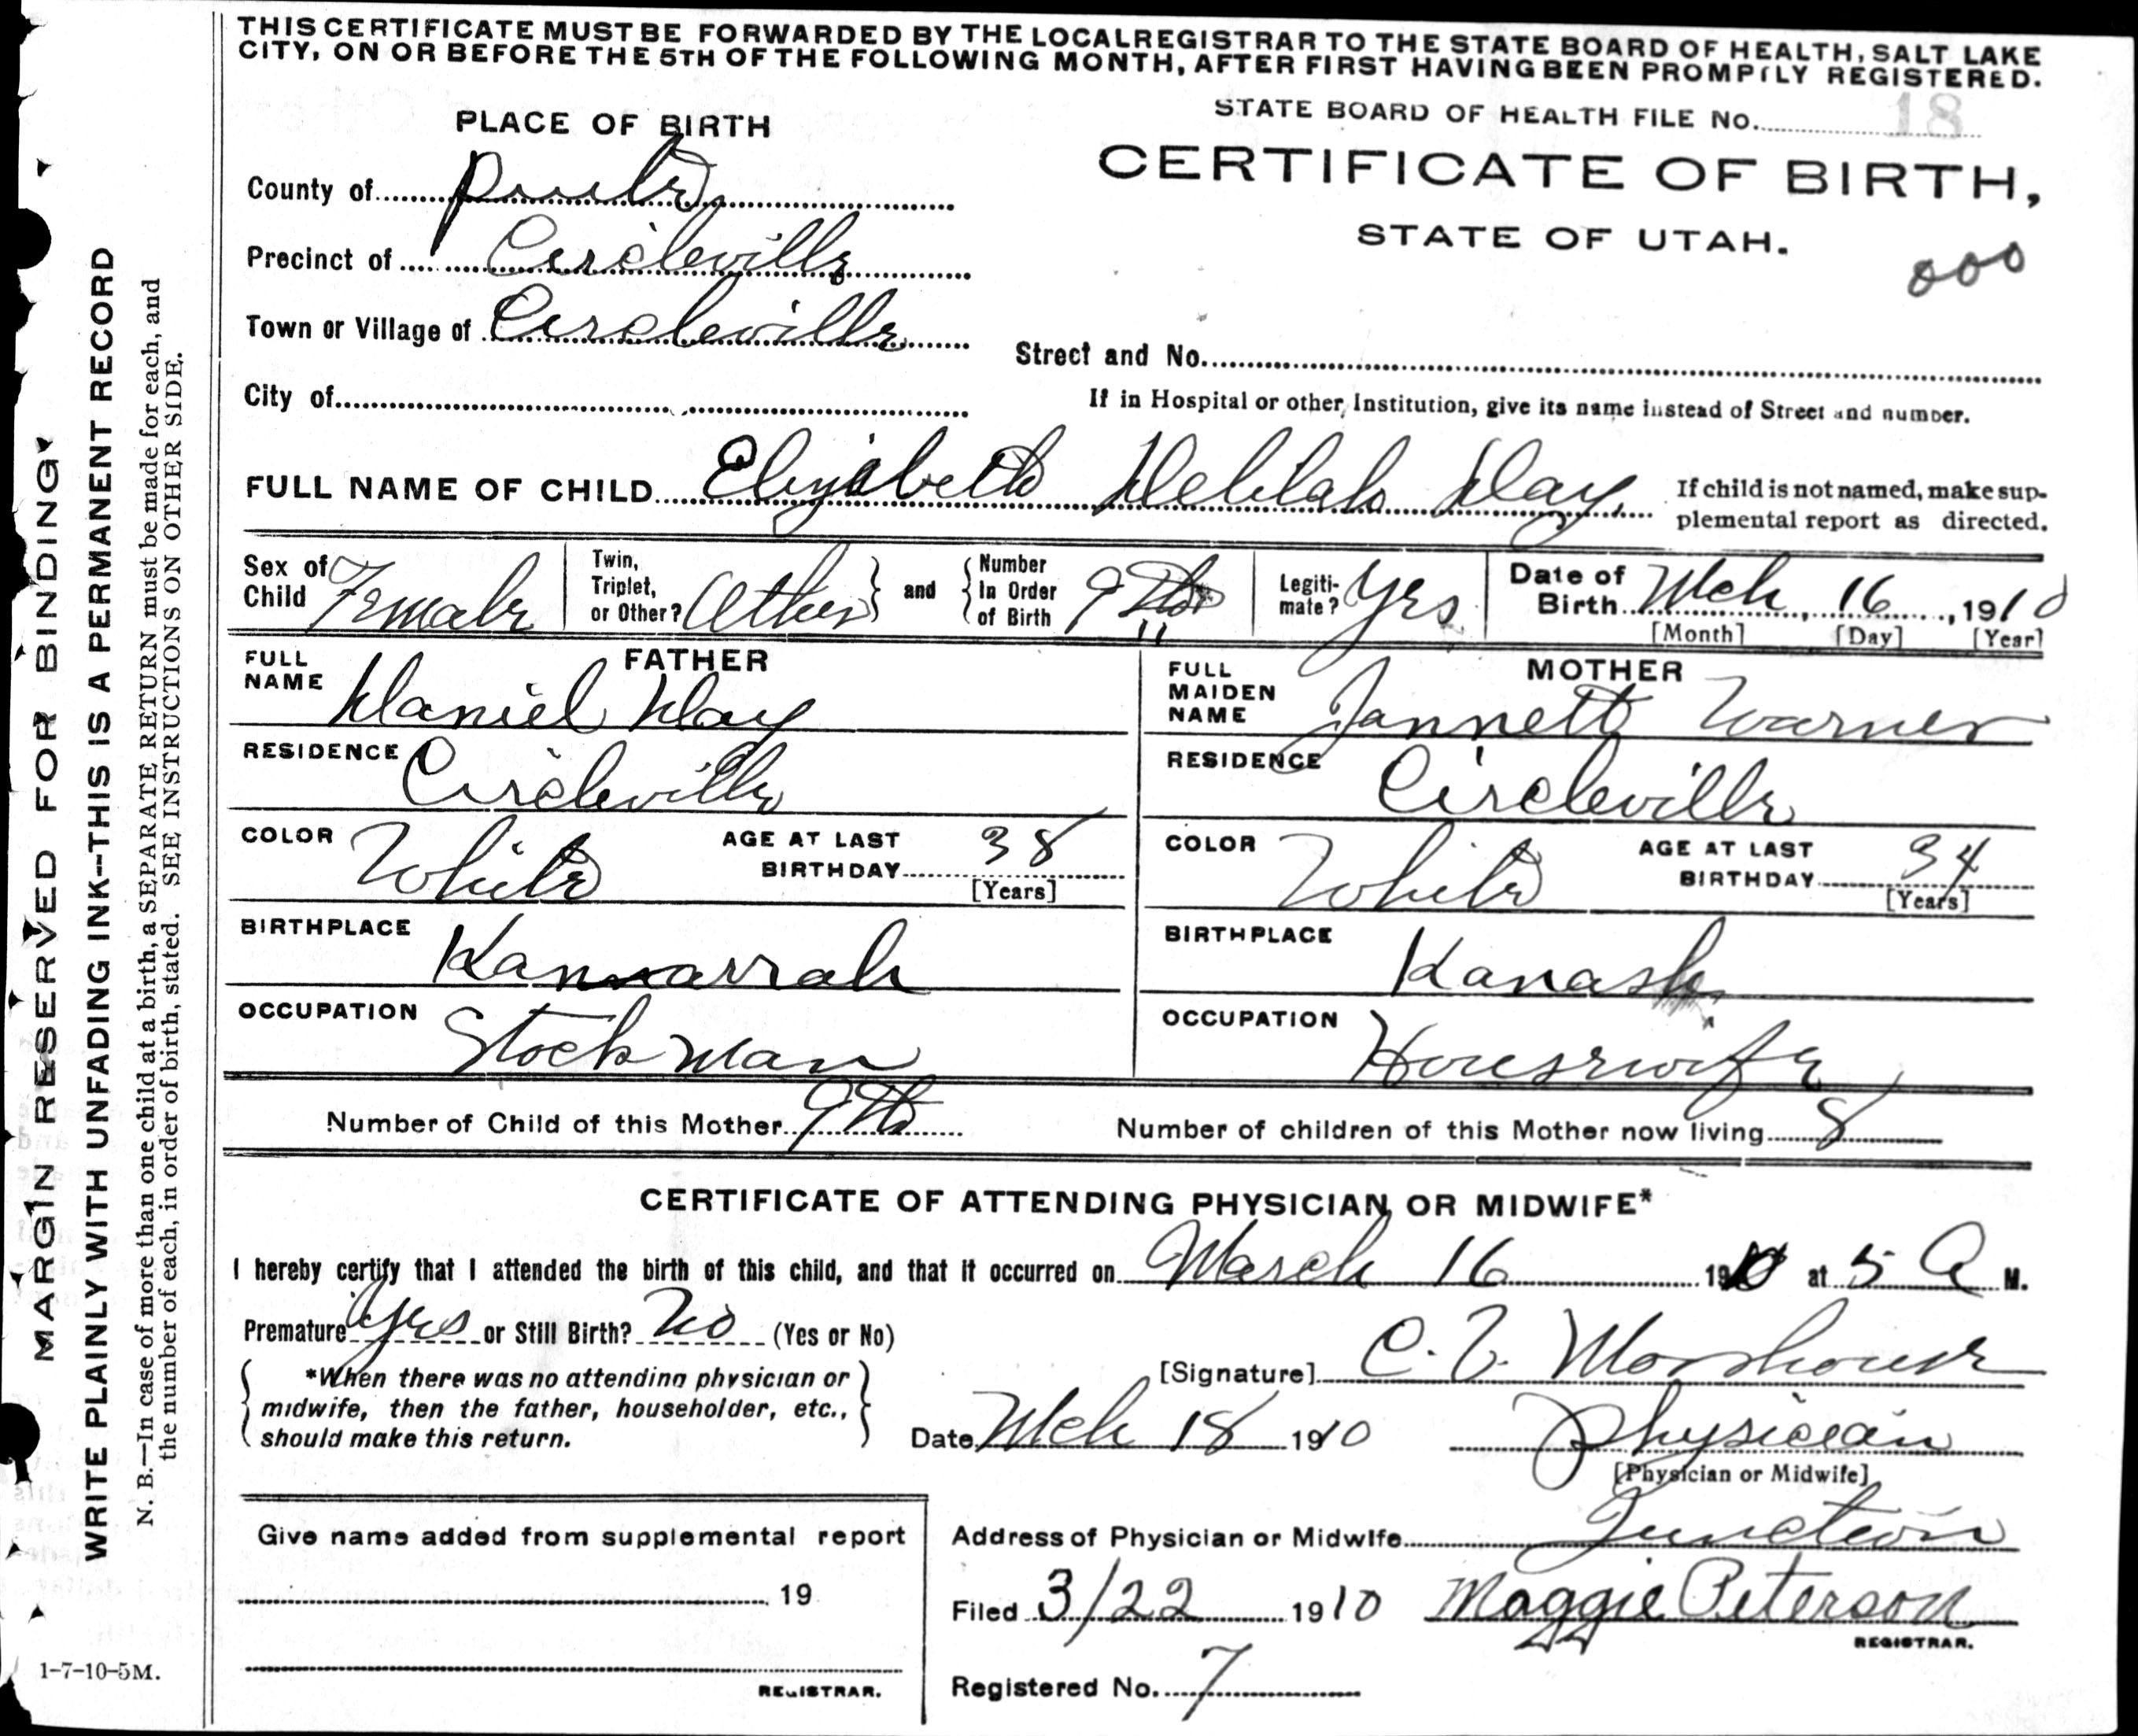 THIS CERTIFICATE MUST BE FORWARDED BY THE LOCAL REGISTRAR TO THE STATE BOARD OF HEALTH, SALT LAKE
CITY, ON OR BEFORE THE 5TH OF THE FOLLOWING MONTH, AFTER FIRST HAVING BEEN PROMPTLY REGISTERED.
STATE BOARD OF HEALTH FILE No. 18
PLACE OF BIRTH
CERTIFICATE OF BIRTH,
STATE OF UTAH.
000
County of
Precinct of Circleville
Town or Village of Circleville
Street and No.
City of
If in Hospital or other Institution, give its name instead of Street and number.
FULL NAME OF CHILD Elizabeth Delilah Day
If child is not named, make sup-
plemental report as directed.
Sex of Child Female
Twin, Triplet, or Other? Other and Number In Order of Birth 9th
Legiti-mate? Yes
Date of Birth Mch 16, 1910
[Month] [Day] [Year]
FATHER
FULL NAME Daniel Day
RESIDENCE Circleville
COLOR White AGE AT LAST BIRTHDAY 38
[Years]
BIRTHPLACE Kannarrah
OCCUPATION Stockman
MOTHER
FULL MAIDEN NAME Jannett Warner
RESIDENCE Circleville
COLOR White AGE AT LAST BIRTHDAY 34
[Years]
BIRTHPLACE Kanash
OCCUPATION Housewife
Number of Child of this Mother 9th
Number of children of this Mother now living 8
CERTIFICATE OF ATTENDING PHYSICIAN OR MIDWIFE*
I hereby certify that I attended the birth of this child, and that it occurred on March 16 1910 at 5 A M.
Premature Yes or Still Birth? No (Yes or No)
*When there was no attending physician or
midwife, then the father, householder, etc.,
should make this return.
[Signature] C. E. Morehouse
Date Mch 18 1910 Physician
[Physician or Midwife]
Give name added from supplemental report
19
REGISTRAR.
Address of Physician or Midwife Junction
Filed 3/22 1910 Maggie Peterson
REGISTRAR.
Registered No. 7
MARGIN RESERVED FOR BINDING
WRITE PLAINLY WITH UNFADING INK--THIS IS A PERMANENT RECORD
N. B.—In case of more than one child at a birth, a SEPARATE RETURN must be made for each, and
the number of each, in order of birth, stated. SEE INSTRUCTIONS ON OTHER SIDE.
1-7-10-5M.